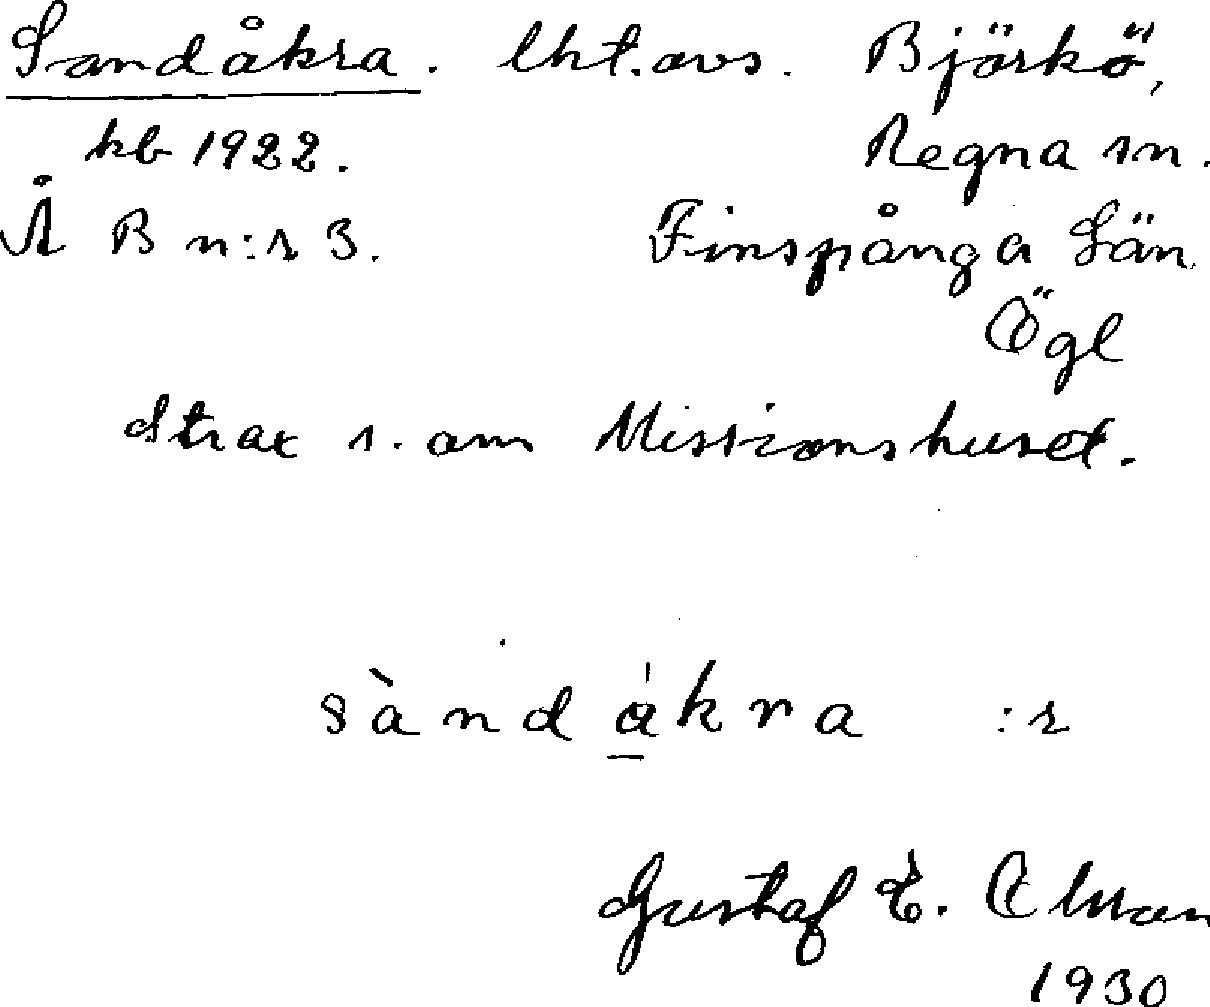 Sandåkra. lht.avs. Björkö,
kb 1922. Regna sn.
Å B n:r 3. Finspånga Län
Ögl
Strax s. om Missionshuset.
sàndákra :r
Gustaf E.
1930